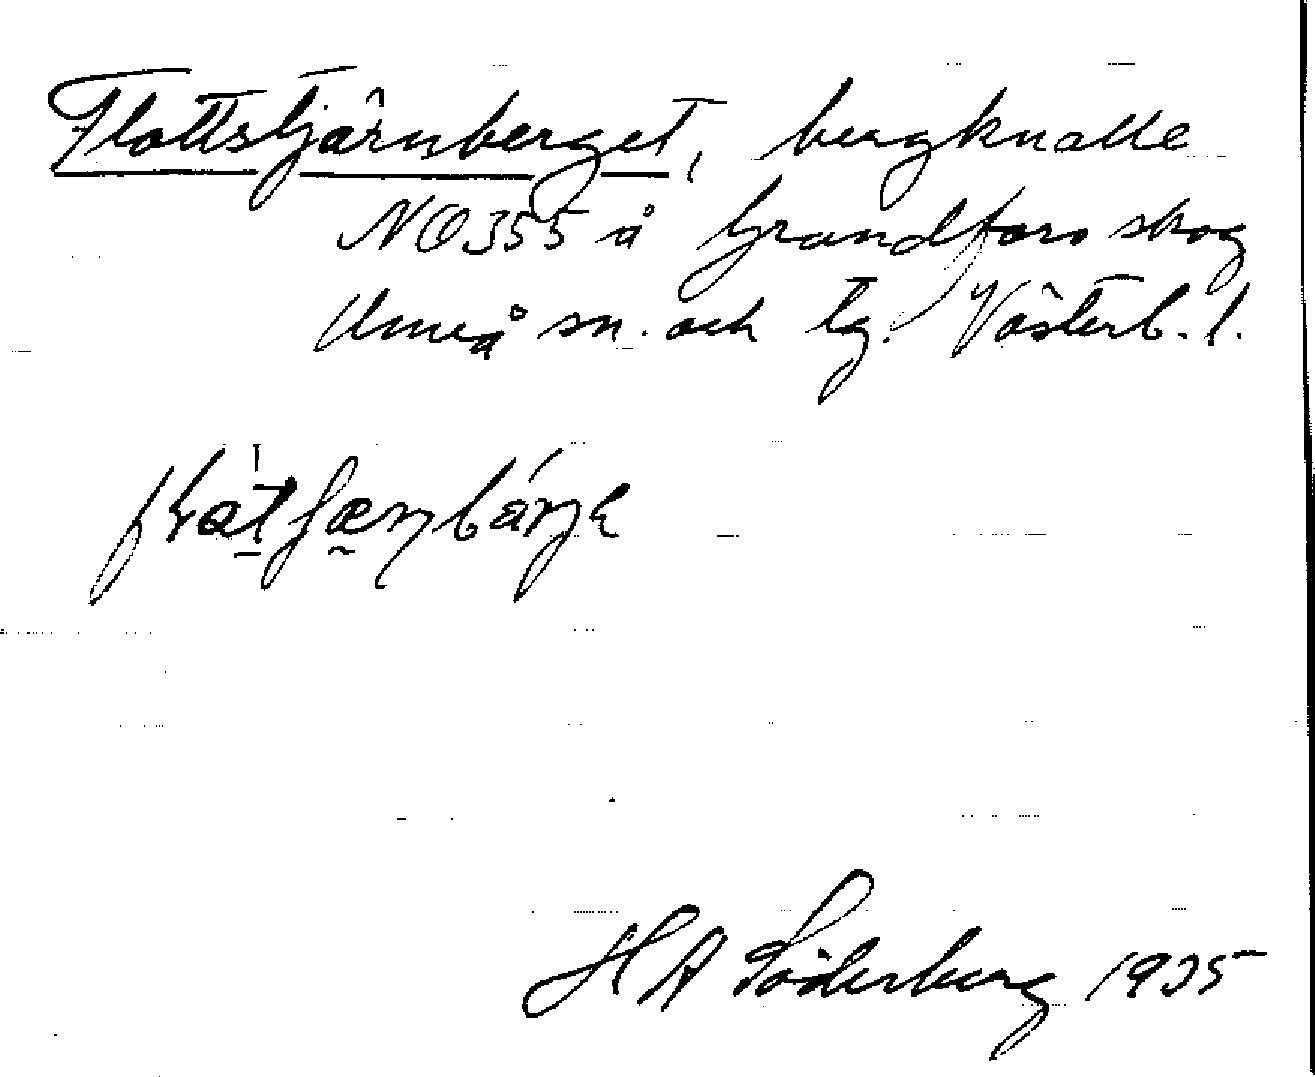 Flottstjärnberget, bergknalle
NO355 å Brändfors skog
Umeå sn. och tg. Västerb. l.
H A Söderberg 1935